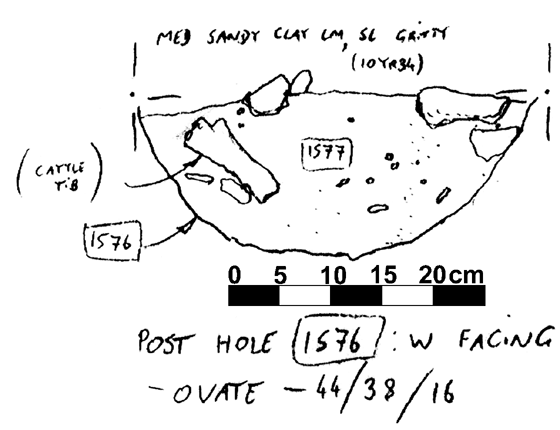 MED SANDY CLAY LM, SL GRITTY
(10YR34)
1577
(CATTLE
TIB)
1576
0 5 10 15 20cm
POST HOLE 1576 : W FACING
- OVATE - 44/38/16